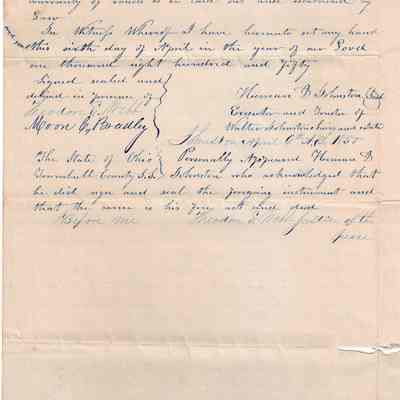 Law
In Witness Whereof I have hereunto set my hand
this sixth day of April in the year of our Lord
one thousand eight hundred and fifty
Signed sealed and
delivered in presence of
Theodore E Webb
Moon C Bradley
Herman B Johnston Seal
Executor and Trustee of
Walter Johnston
Johnston April 6th AD 1850
The State of Ohio
Trumbull County S.S.
Personally Appeared Herman B
Johnston who acknowledged that
he did sign and seal the foregoing instrument and
that the same is his free act and deed
Before me Theodore E Webb Justice of the
peace